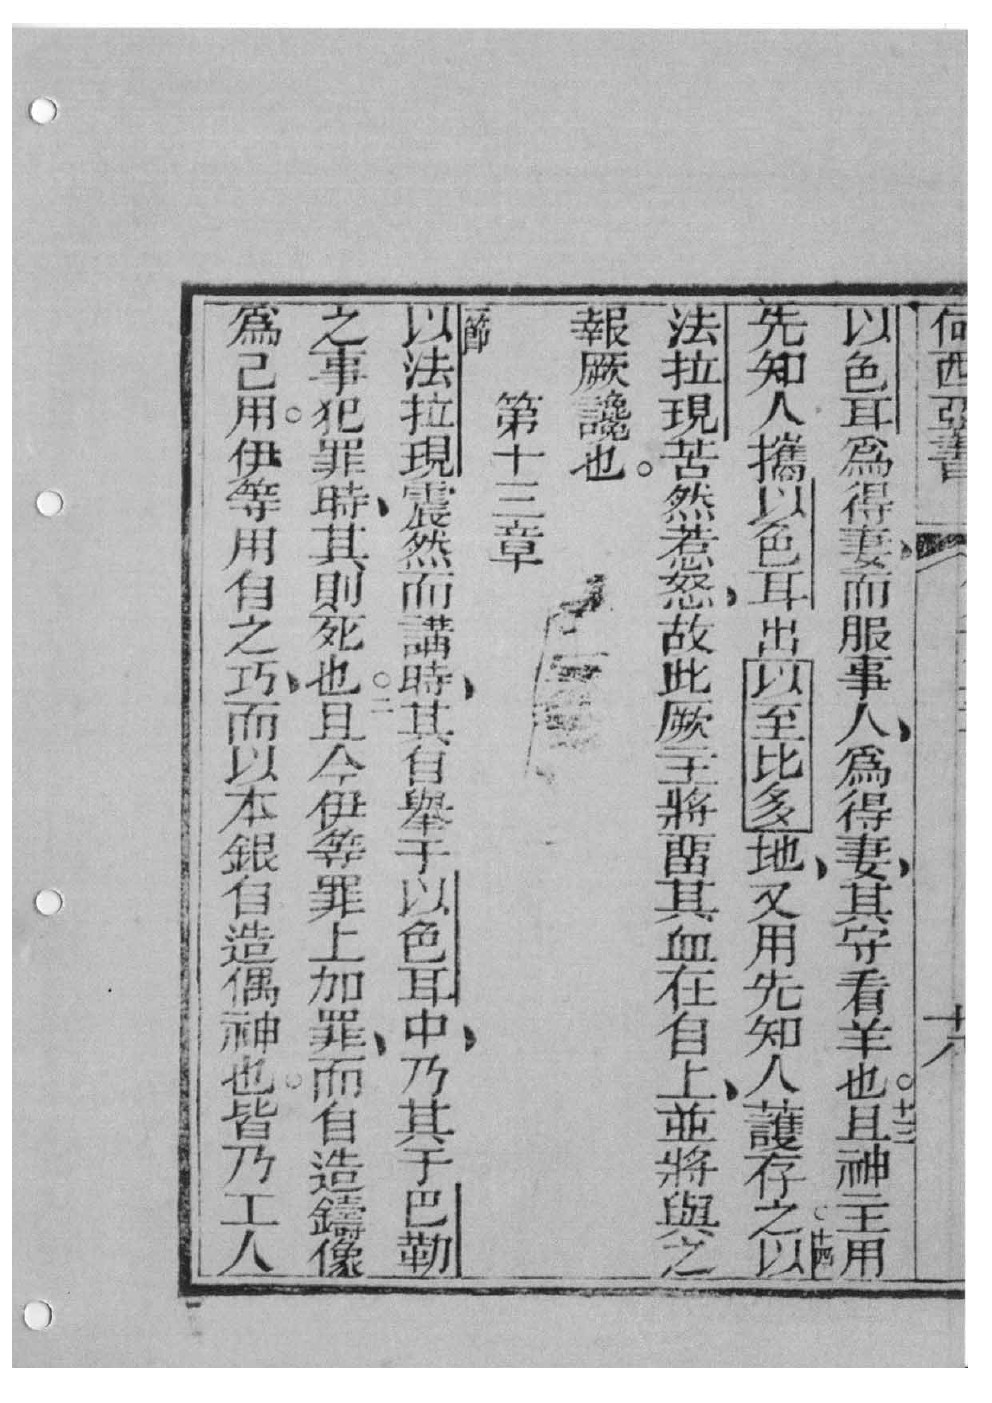 何西亞書 十八
以色耳爲得妻、而服事人、爲得妻、其守看羊也。十三且神主用
先知人攜以色耳出以至比多地、又用先知人護存之。十四以
法拉現苦然惹怒、故此厥主將畱其血在自上、並將與之
報厥讒也。
第十三章
一節
以法拉現震然而講時、其自舉于以色耳中、乃其于巴勒
之事犯罪時、其則死也。二且今伊等罪上加罪、而自造鑄像
爲己用。伊等用自之巧、而以本銀自造偶神也。皆乃工人